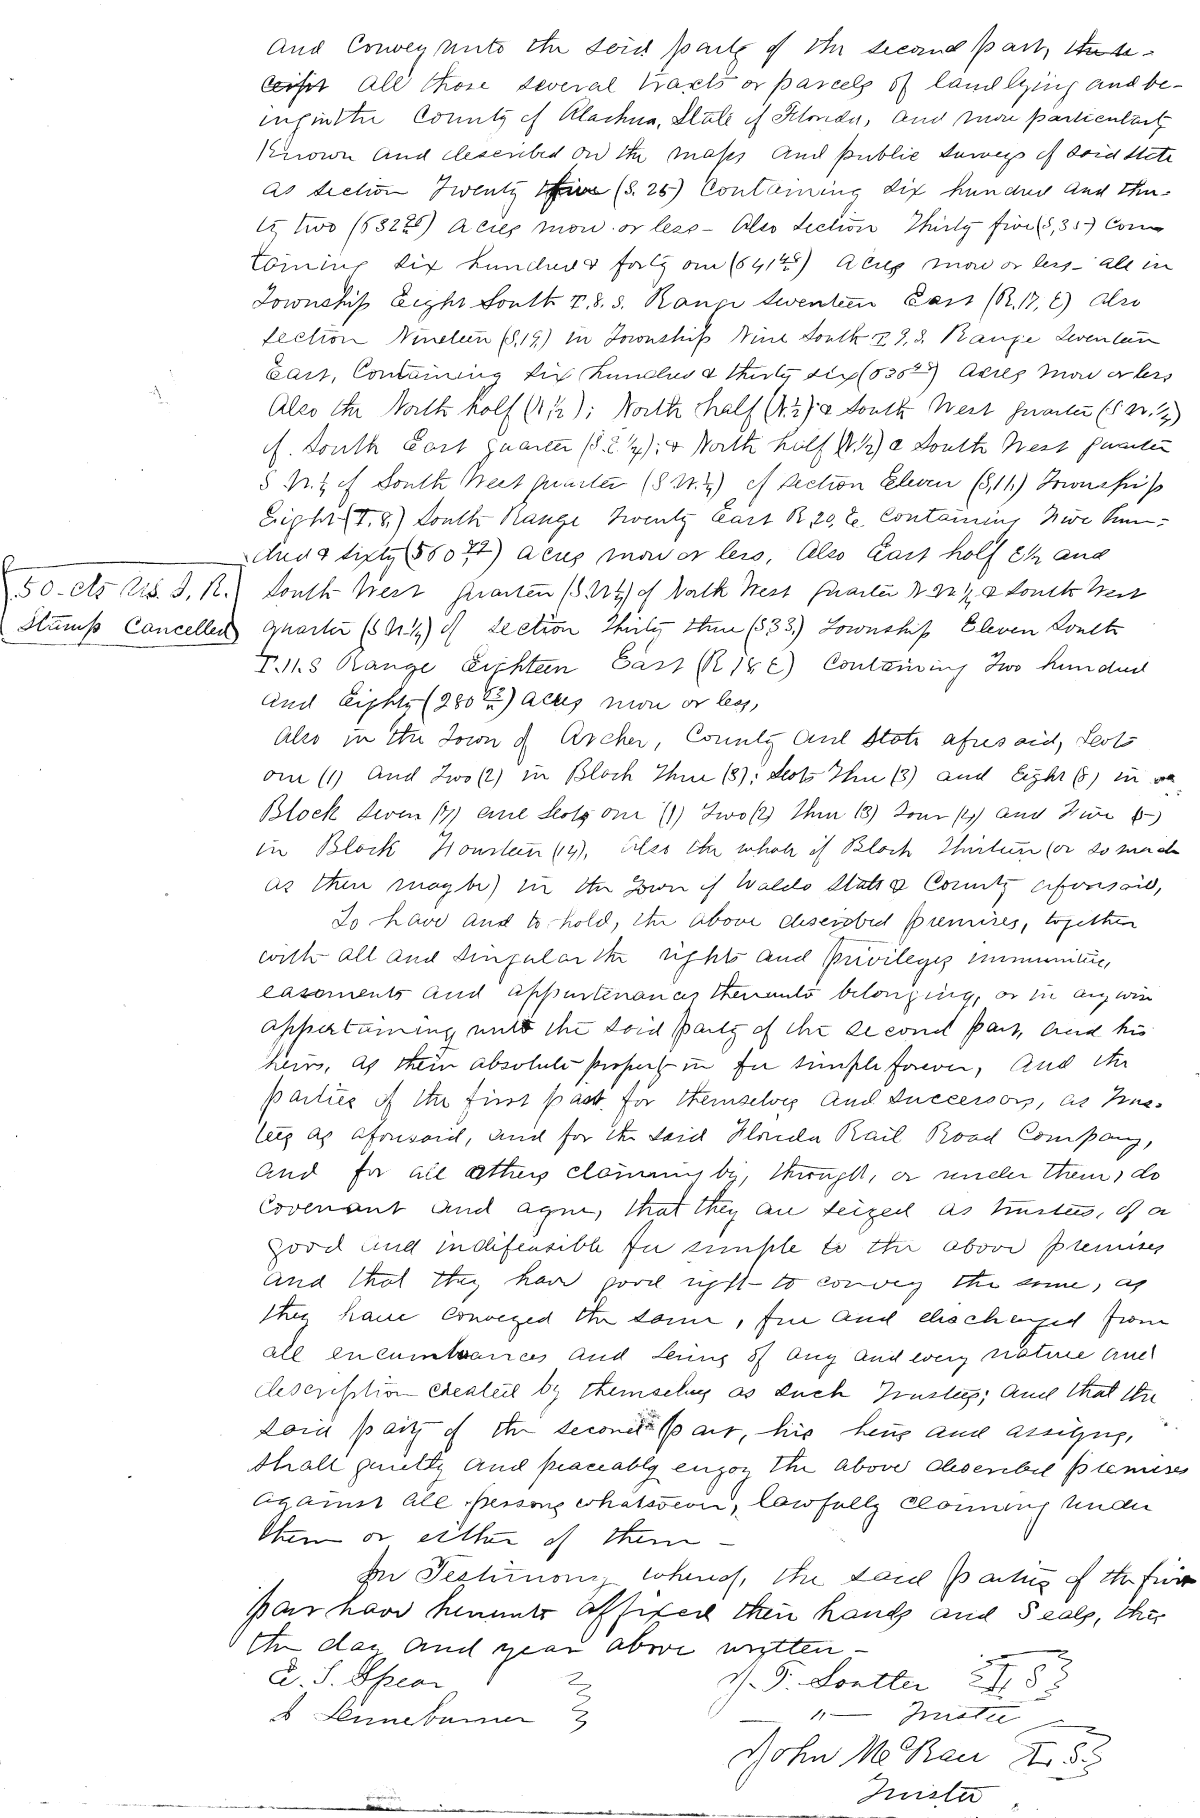 and convey unto the said party of the second part, these-
ceipt all those several tracts or parcels of land lying and be-
ing in the County of Alachua, State of Florida, and more particularly
Known and described on the maps and public surveys of said State
as section Twenty five (S. 25) Containing six hundred and thir-
ty two (632) acres more or less- Also Section Thirty five (S, 35) Con-
taining six hundred & forty one (641) acres more or less- all in
Township Eight South T. 8. S. Range Seventeen East (R. 17, E) also
section Nineteen (S, 19,) in Township Nine South T 9, S. Range Seventeen
East, Containing six hundred & thirty six (636) acres more or less
Also the North half (N ½); North half (N. ½) & South West quarter (S W. ¼)
of South East quarter (S. E ¼); & North half (N. ½) & South West quarter
S W. ¼ of South West quarter (S W. ¼) of section Eleven (S, 11,) Township
Eight (T. 8.) South Range Twenty East R, 20, E. Containing Five hun-
dred & sixty (560) acres more or less, Also East half E ½ and
.50-cts U.S. I. R.
Stamp Cancelled
South West quarter (S. W ¼) of North West quarter N W ¼ & South West
quarter (S W. ¼) of section Thirty three (S 33,) Township Eleven South
T. 11. S Range Eighteen East (R 18, E) Containing Two hundred
and Eighty (280) acres more or less,
Also in the Town of Archer, County and State aforesaid, Lots
one (1) and Two (2) in Block Three (3); Lots Three (3) and Eight (8) in
Block Seven (7) and Lots one (1) Two (2) Three (3) Four (4) and Five (5)
in Block Fourteen (14), Also the whole of Block Thirteen (or so much
as there may be) in the Town of Waldo State & County aforesaid,
To have and to hold, the above described premises, together
with all and singular the rights and privileges immunities,
easements and appurtenances thereunto belonging, or in anywise
appertaining unto the said party of the second part, and his
heirs, as their absolute property in fee simple forever, And the
parties of the first part for themselves and successors, as Trus-
tees as aforesaid, and for the said Florida Rail Road Company,
and for all others claiming by, through, or under them, do
covenant and agree, that they are seized as trustees, of a
good and indifeasible fee simple to the above premises
and that they have good right to convey the same, as
they have conveyed the same, free and discharged from
all encumbrances and liens of any and every nature and
description created by themselves as such Trustees; and that the
said party of the second part, his heirs and assigns,
shall quietly and peaceably enjoy the above described premises
against all persons whatsoever, lawfully claiming under
them or either of them -
In Testimony whereof, the said parties of the first
part have hereunto affixed their hands and Seals, this
the day and year above written -
E. S. Spear
J. T. Soutter L S
" Trustee
John McRae L. S.
Trustee